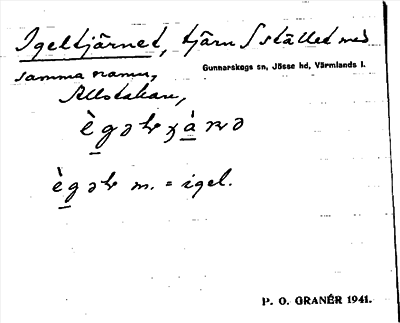 Igeltjärnet, tjärn S stället med
samma namn,
Gunnarskogs sn, Jösse hd, Värmlands l.
Allstakan,
m. = igel.
P. O. GRANÉR 1941.